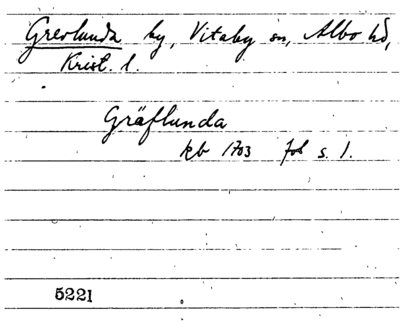 Grevlunda by, Vitaby sn, Albo hd,
Krist. l.
Gräflunda
kb 1703 föb s. 1.
5221